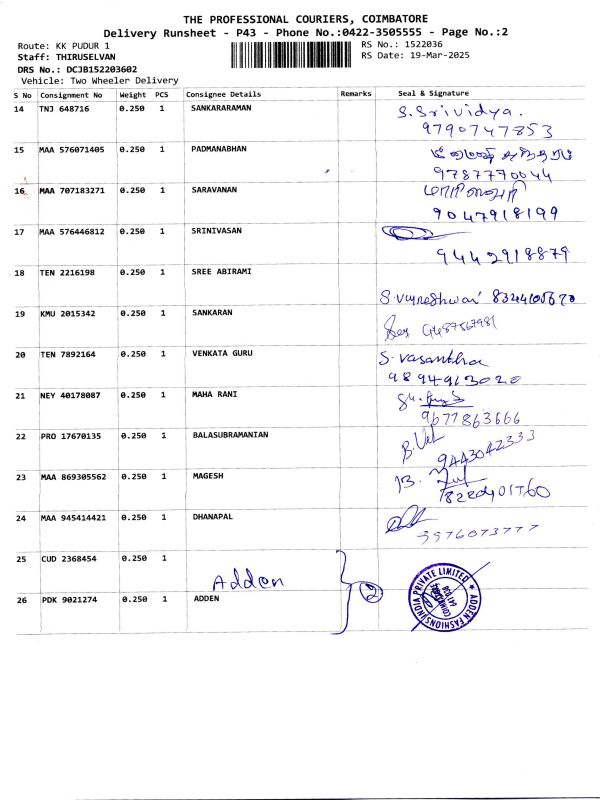 THE PROFESSIONAL COURIERS, COIMBATORE
Delivery Runsheet - P43 - Phone No.:0422-3505555 - Page No.:2
Route: KK PUDUR 1
RS No.: 1522036
Staff: THIRUSELVAN
RS Date: 19-Mar-2025
DRS No.: DCJB152203602
Vehicle: Two Wheeler Delivery
S No Consignment No Weight PCS Consignee Details Remarks Seal & Signature
14 TNJ 648716 0.250 1 SANKARARAMAN S. Srividya.
9790747853
15 MAA 576071405 0.250 1 PADMANABHAN
9787770044
16 MAA 707183271 0.250 1 SARAVANAN
9047918199
17 MAA 576446812 0.250 1 SRINIVASAN
9442918879
18 TEN 2216198 0.250 1 SREE ABIRAMI
19 KMU 2015342 0.250 1 SANKARAN
20 TEN 7892164 0.250 1 VENKATA GURU S. Vasantha
9894913020
21 NEY 40178087 0.250 1 MAHA RANI
9677863666
22 PRO 17670135 0.250 1 BALASUBRAMANIAN
9443042333
23 MAA 869305562 0.250 1 MAGESH
24 MAA 945414421 0.250 1 DHANAPAL
25 CUD 2368454 0.250 1 Adden
26 PDK 9021274 0.250 1 ADDEN
2
ADDEN FASHIONS INDIA PRIVATE LIMITED